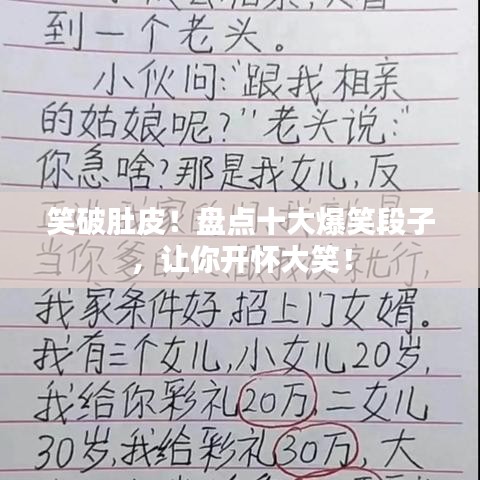 到一个老头。
小伙问:“跟我相亲
的姑娘呢?”老头说:“
你急啥?那是我女儿,反
笑破肚皮！盘点十大爆笑段子
，让你开怀大笑！
当你爹的 就行,
我家条件好,招上门女婿。
我有三个女儿,小女儿20岁,
我给你彩礼20万,二女儿
30岁,我给彩礼30万,大